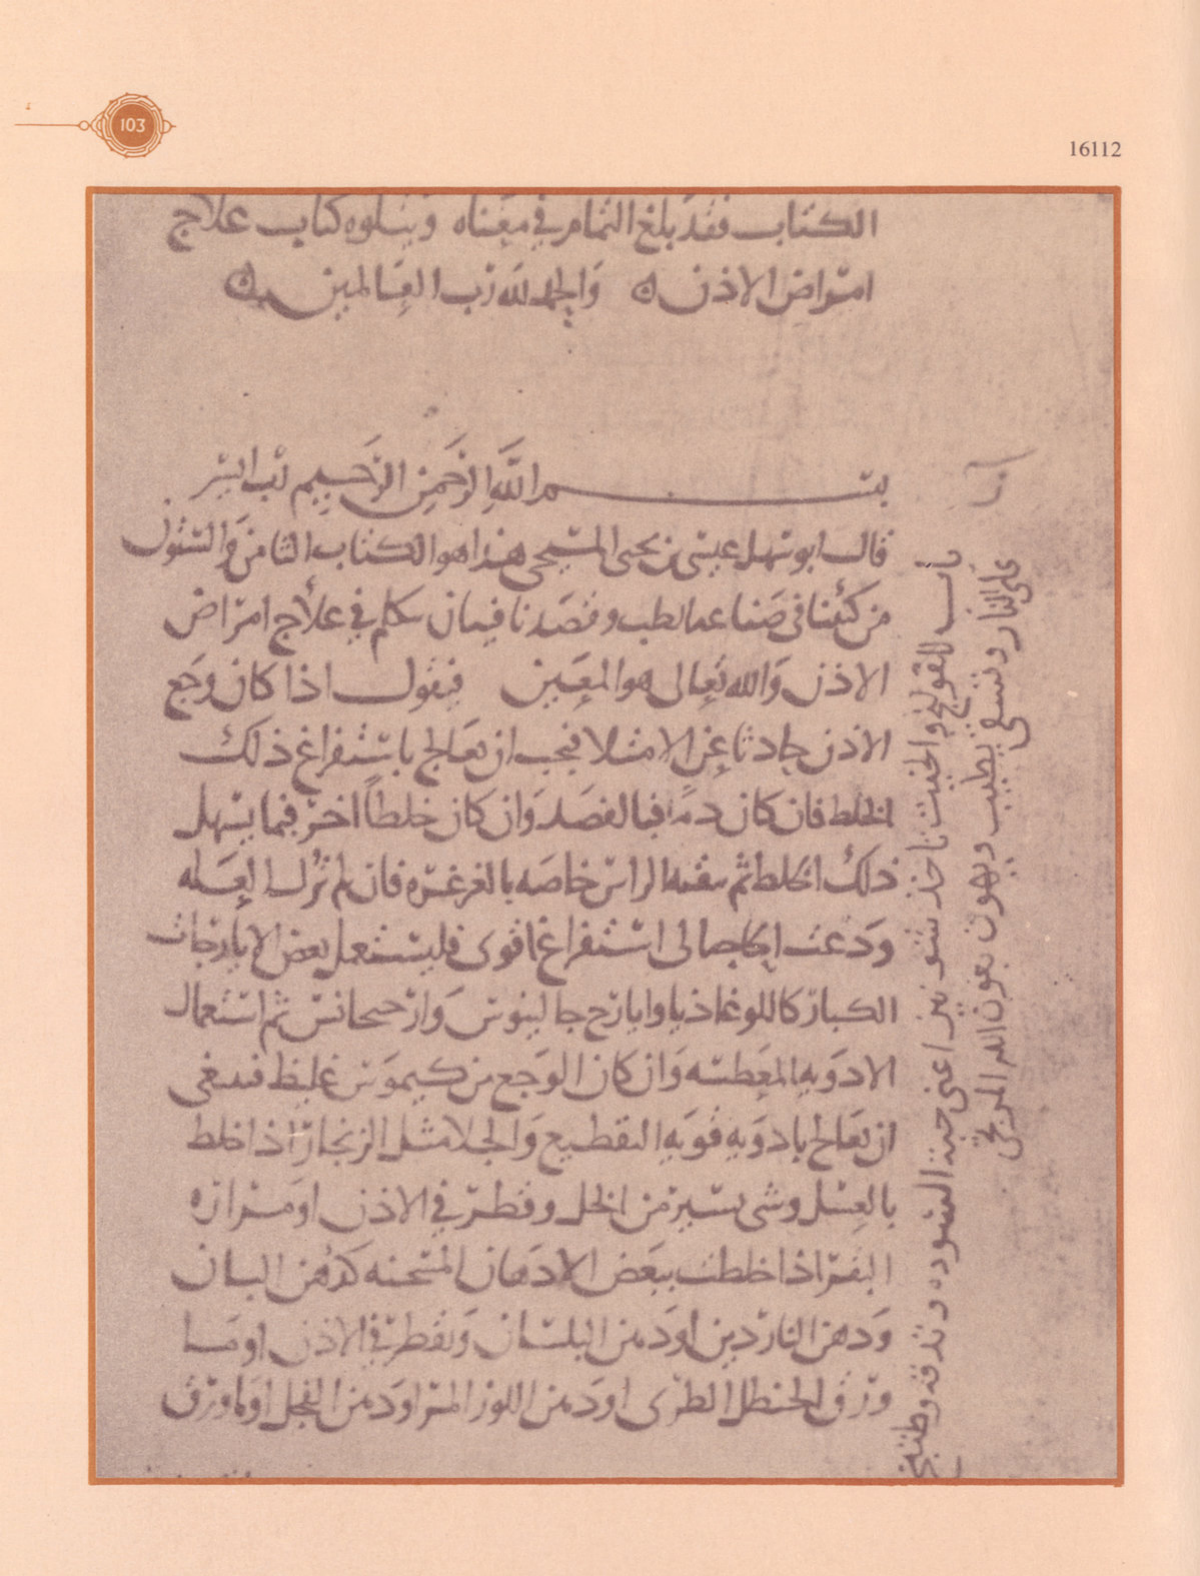 103
16112
الكتاب فقد بلغ التمام في معناه ويتلوه كتاب علاج
امراض الاذن والحمد لله رب العالمين
بسم الله الرحمن الرحيم رب
قال ابو سهل عيسى بن يحيى المسيحي هذا هو الكتاب الثامن والستون
من كتبنا في صناعه الطب وقصدنا فيه ان نتكلم في علاج امراض
الاذن والله تعالى هو المعين فيقول اذا كان وجع
الاذن حادثا عن الامتلا فيجب ان تعالج باستفراغ ذلك
الخلط فان كان دما فبالفصد وان كان خلطا اخر فيما يسهل
ذلك الخلط ثم بنقيه الراس خاصه بالغرغره فان لم تزل العله
ودعت الحاجه الى استفراغ اقوى فليستعمل بعض الايارجات
الكبار كاللوغاذيا وايارج جالينوس وارحيجانس ثم استعمال
الادويه المعطسه وان كان الوجع من كيموس غليظ فينبغي
ان تعالج بادويه قويه التقطيع والجلا مثل الزنجار اذا خلط
بالعسل وشي يسير من الخل وقطر في الاذن او مراره
البقر اذا خلطت ببعض الادهان المسخنه كدهن البان
ودهن الناردين او دهن البلسان وتقطر في الاذن او ما
ورق الحنظل الطري او دهن اللوز المر او دهن الفجل او ما ورق
باب للقولنج تاخذ شونيز اعني حبة السوده وتدقه وطبخ
على النار وتسقي يطيب ويهون بعون الله المرجي